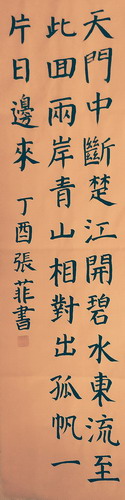 天門中斷楚江開碧水東流至
此回兩岸青山相對出孤帆一
片日邊來
丁酉張菲書